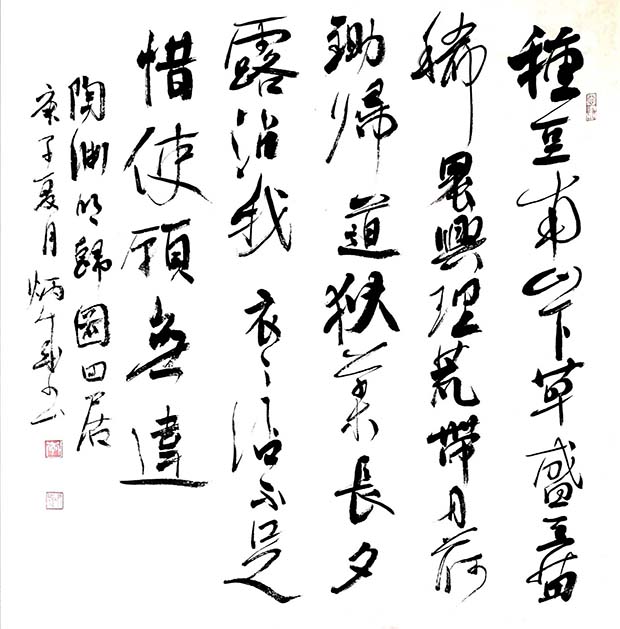 種豆南山下草盛豆苗
稀晨興理荒帶月荷
鋤歸道狹草木長夕
露沾我衣〻沾不足
惜使願無違
陶淵明歸園田居
庚子夏月炳